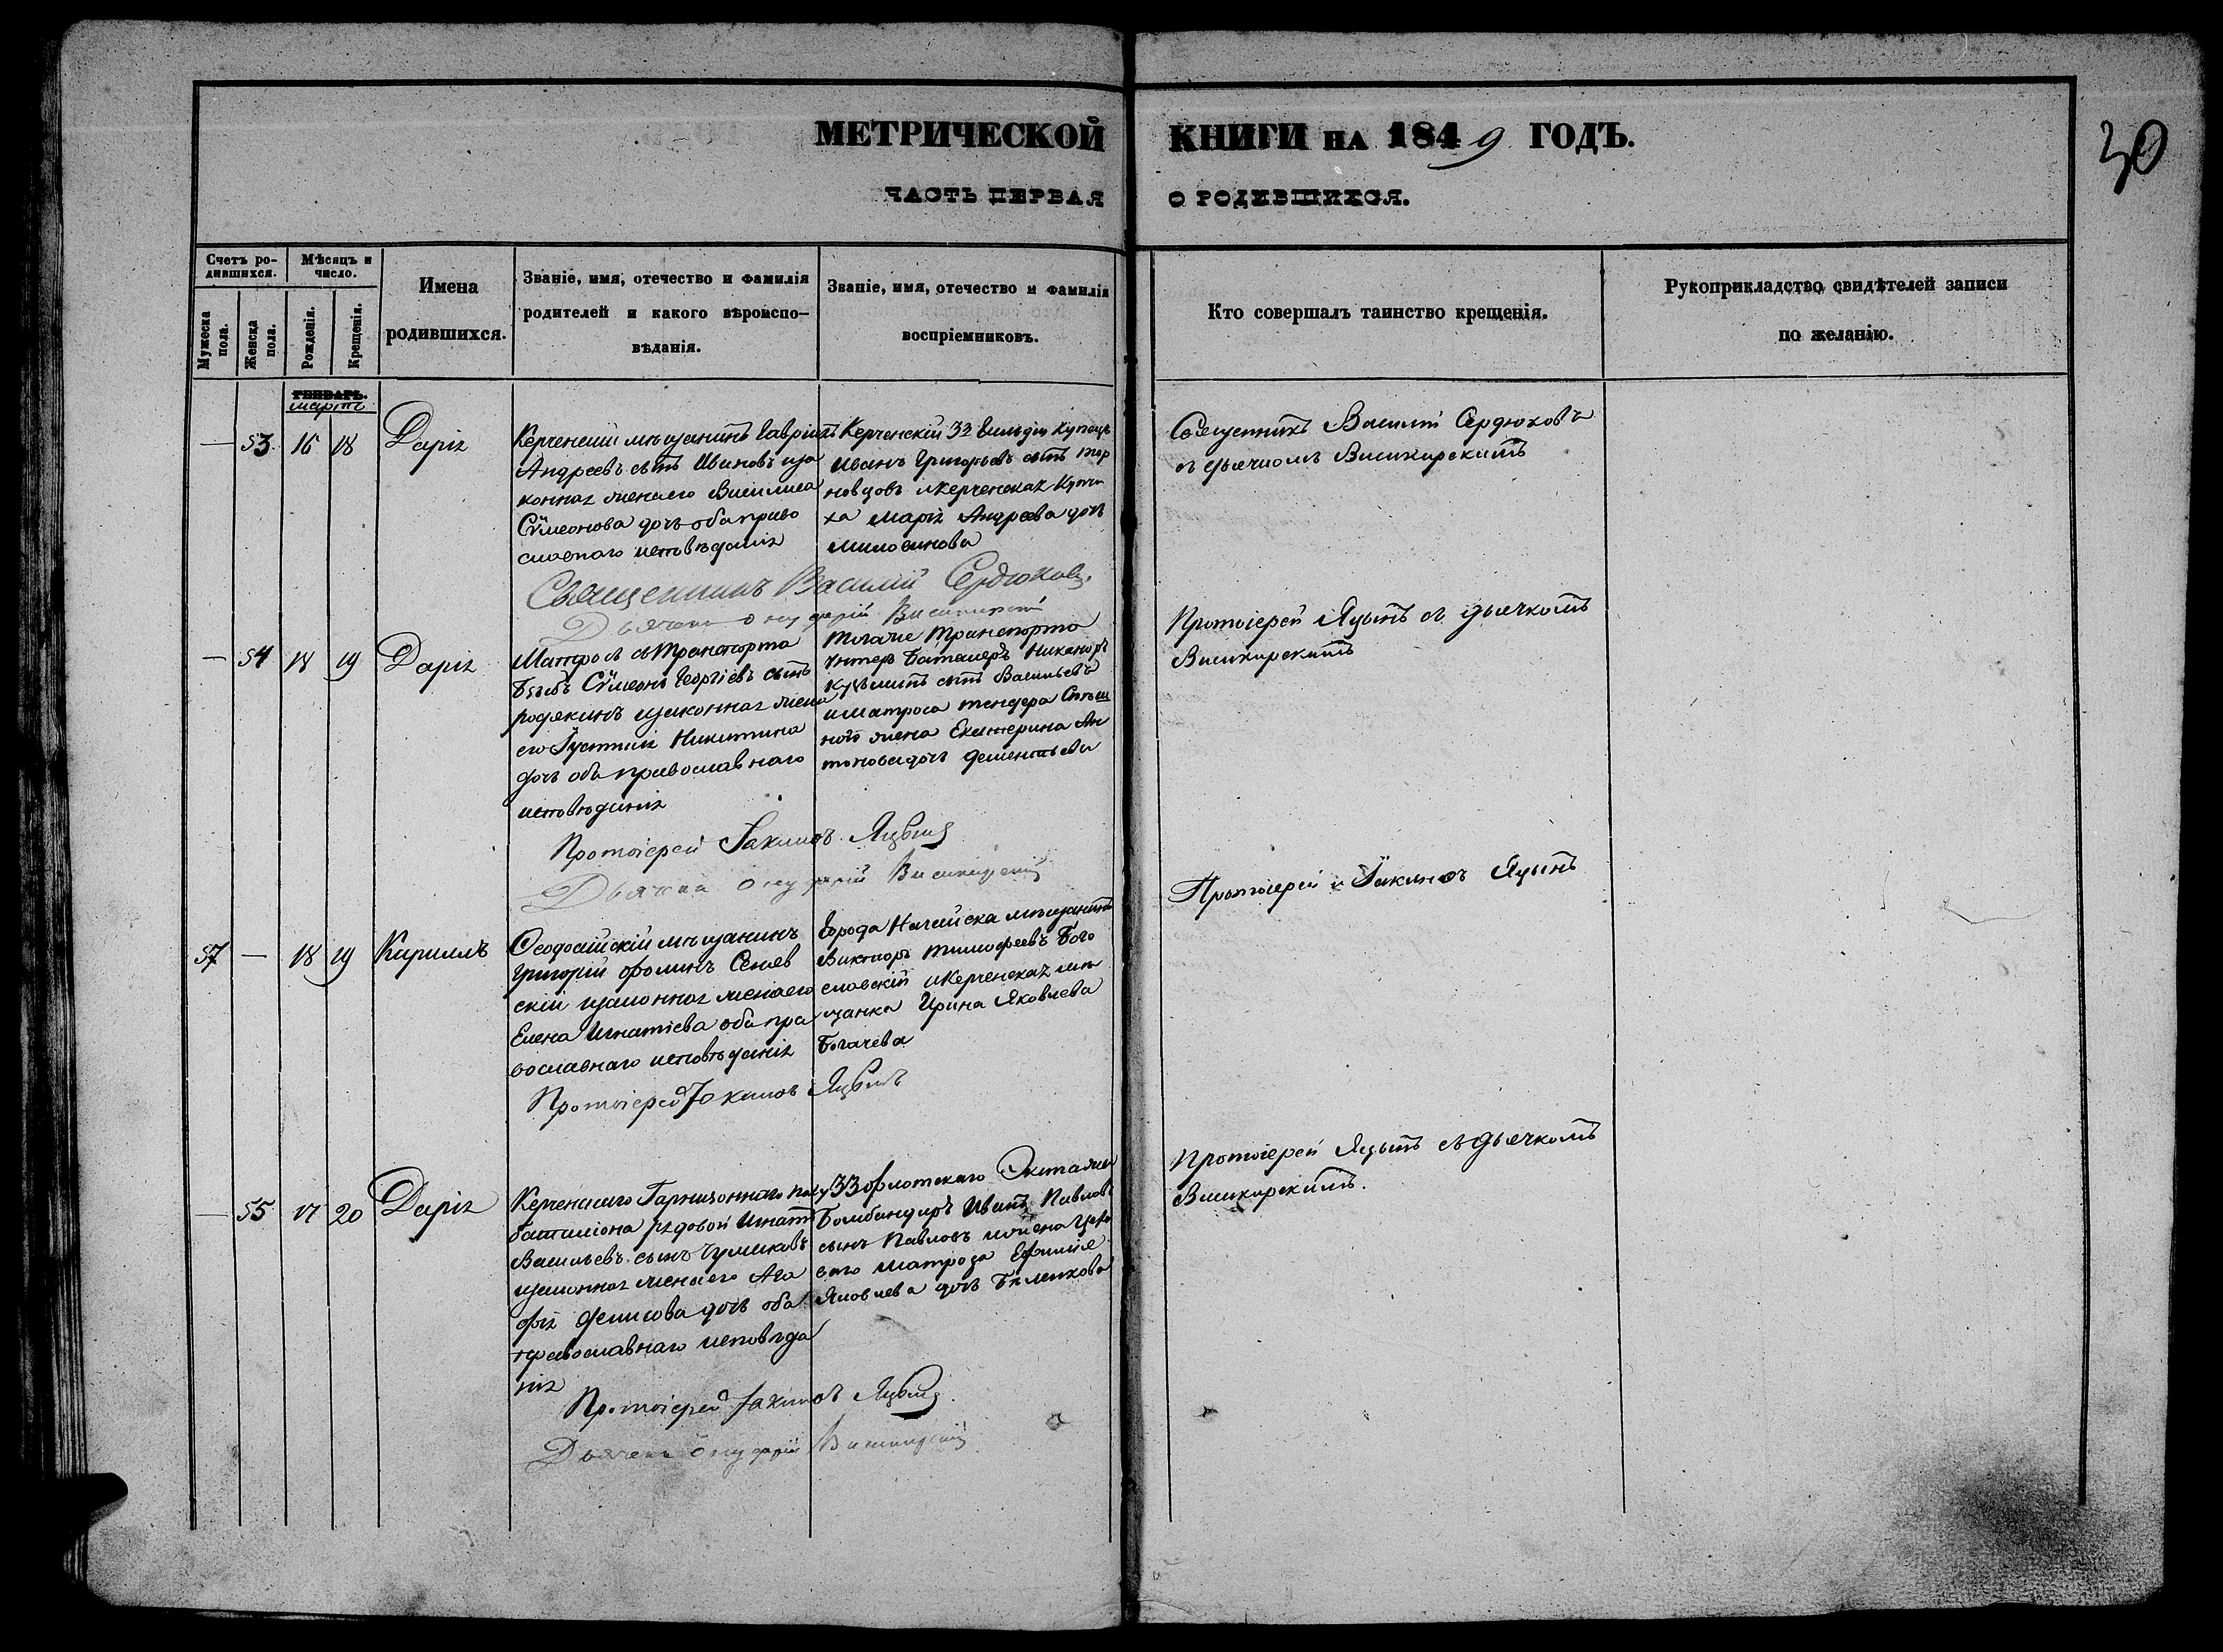 МЕТРИЧЕСКОЙ КНИГИ НА 1849 ГОДЪ.
30
ЧАСТЬ ПЕРВАЯ О РОДИВШИХСЯ.
Счетъ ро-
дившихся.
Мужеска пола.
Женска пола.
Мѣсяцъ и
число.
Рожденія.
Крещенія.
Имена
родившихся.
Званіе, имя, отечество и фамилія
родителей и какого вѣроиспо-
вѣданія.
Званіе, имя, отечество и фамилія
воспріемниковъ.
Кто совершалъ таинство крещенія.
Рукоприкладство свидѣтелей записи
по желанію.
ГЕНВАРЬ.
мартъ
— 53 16 18 Дарія
Керченскій мѣщанинъ Гавріилъ
Андреевъ сынъ Ивановъ иза
конная жена его Василиса
Сѵмеонова дочь оба право
славнаго исповѣданія
Керченскій 3й Гильдіи Купецъ
Иванъ Григорьевъ сынъ
новцовъ и Керченская Купчи
ха Марія Андреева дочь
Священникъ Василій Сердюковъ
съ дьячкомъ
Священникъ Василій Сердюковъ.
Дьячекъ
— 54 18 19 Дарія
Матросъ съ Транспорта
Сѵмеонъ Георгіевъ сынъ
родякинъ изаконная жена
его Іустинія Никитина
дочь оба православнаго
исповѣданія
тогоже Транспорта
Унтеръ Баталеръ Никаноръ
сынъ Васильевъ
и матроса тендера Спѣш
ного жена Екатерина Ан
тонова дочь Дементьева
Протоіерей Яцынъ съ дьячкомъ
Протоіерей Іакинѳъ
Дьячекъ
57 — 18 19 Кириллъ
Ѳеодосійскій мѣщанинъ
Григорій Ѳоминъ
скій изаконная жена его
Елена Игнатіева оба пра
вославнаго исповѣданія
Города Ногайска мѣщанинъ
Викторъ Тимофеевъ Бого
словскій и Керченская мѣ
щанка Ирина Яковлева
Богачева
Протоіерей Іакинѳъ Яцынъ
Протоіерей Іакинѳъ
— 55 17 20 Дарія
Керченскаго Гарнизоннаго полу
баталіона рядовой Игнатъ
Васильевъ сынъ Чумаковъ
изаконная жена его Ага
фія Денисова дочь оба
православнаго исповѣда
нія
33 флотскаго Экипажа
Бомбандиръ Иванъ Павловъ
сынъ Павловъ и жена
ваго матроза Ефимія
Яковлева дочь Бѣленкова
Протоіерей Яцынъ съ дьячкомъ
Протоіерей Іакинѳъ
Дьячекъ